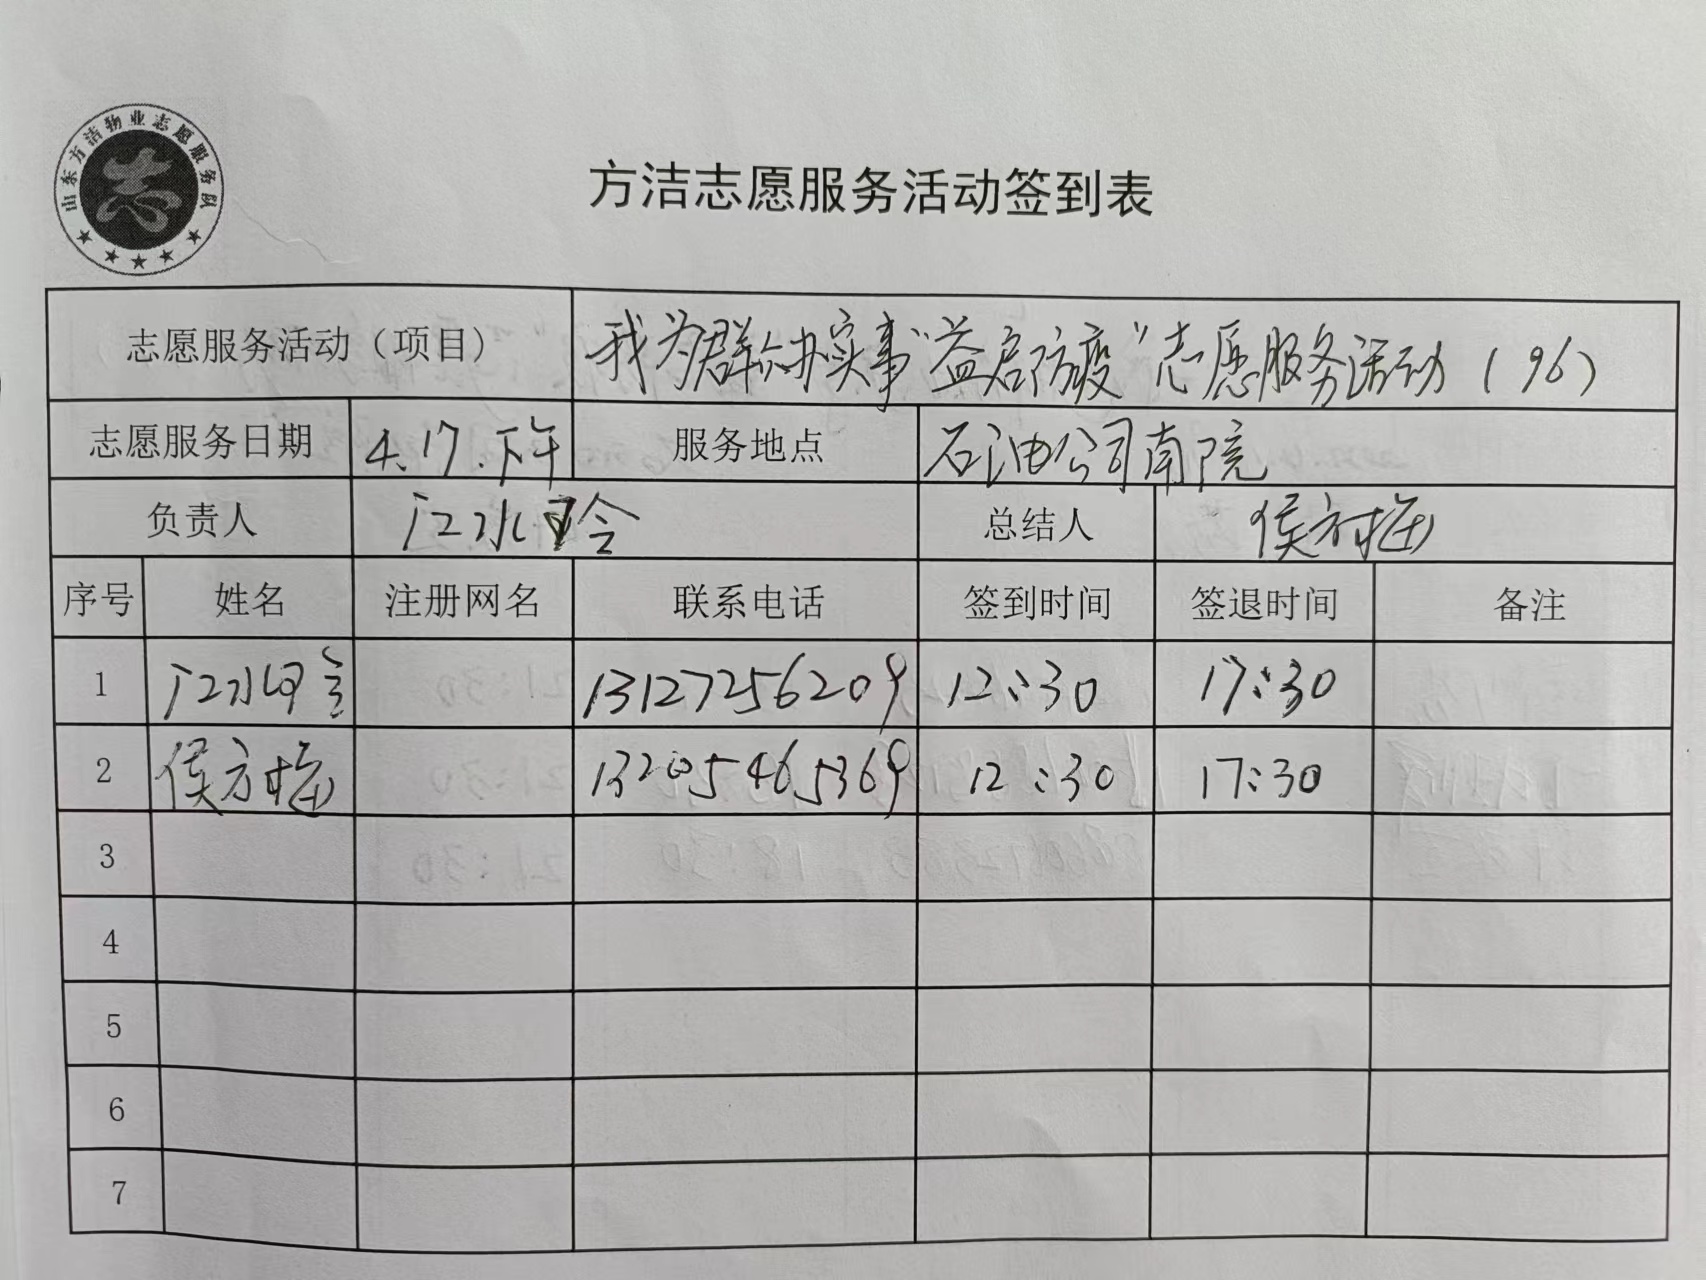 山东方洁物业志愿服务队
志
方洁志愿服务活动签到表
志愿服务活动（项目） 我为群众办实事“益启防疫”志愿服务活动（96）
志愿服务日期 4.17.下午 服务地点 石油公司南院
负责人 总结人 侯方梅
序号 姓名 注册网名 联系电话 签到时间 签退时间 备注
1 13127256209 12:30 17:30
2 侯方梅 13205465369 12:30 17:30
3
4
5
6
7